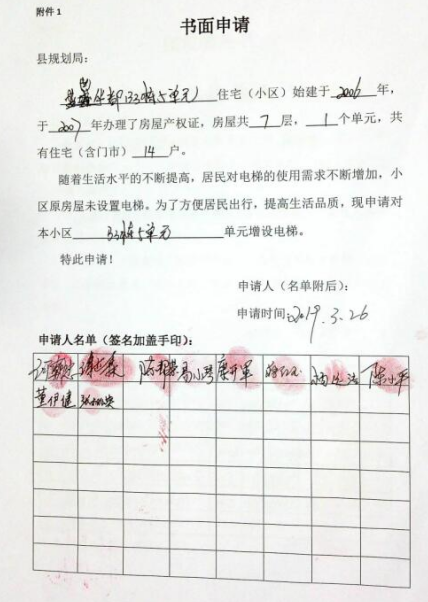 附件 1
书面申请
县规划局：
华都B3栋5单元 住宅（小区）始建于 2006 年，
于 2007 年办理了房屋产权证，房屋共 7 层， 1 个单元，共
有住宅（含门市） 14 户。
随着生活水平的不断提高，居民对电梯的使用需求不断增加，小
区原房屋未设置电梯。为了方便居民出行，提高生活品质，现申请对
本小区 B3栋5单元 单元增设电梯。
特此申请！
申请人（名单附后）：
申请时间：2019.3.26
申请人名单（签名加盖手印）：
陈小平